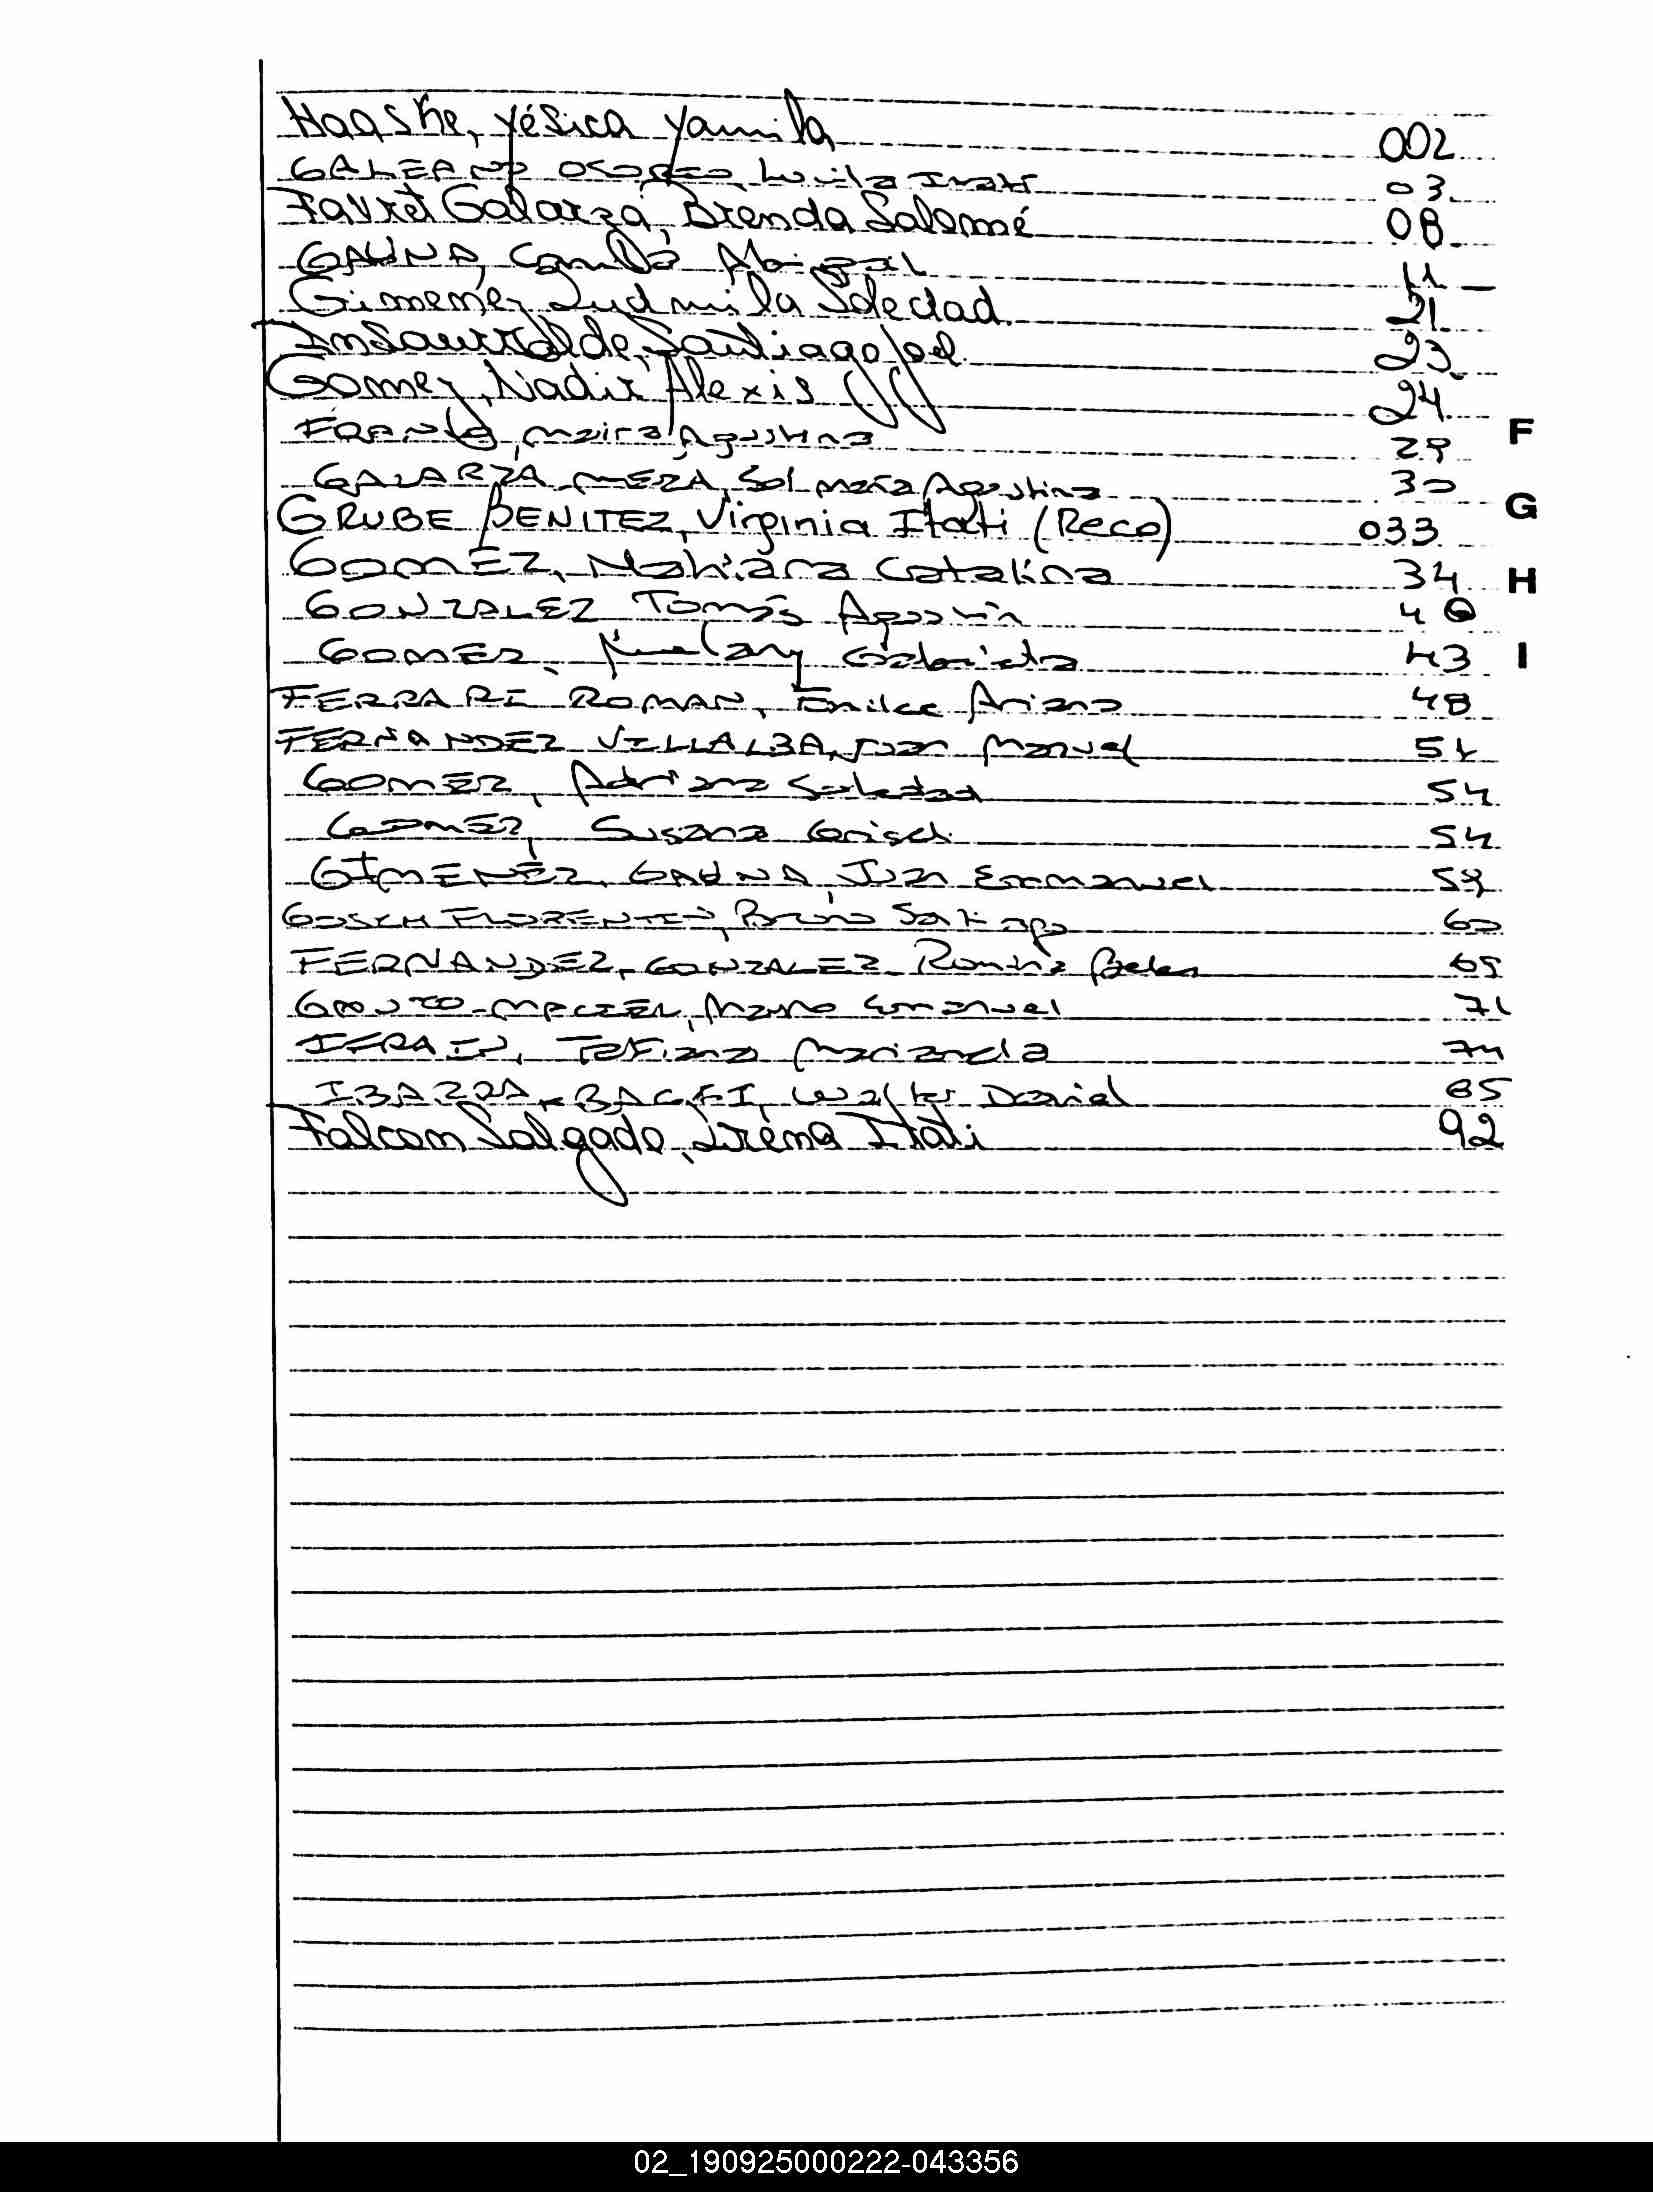 Haqshe, Yésica Yamila 002
GALEANO OSORIO, Lucila Itatí 03
Favret Galarza, Brenda Salomé 08
GAUNA, Camila Abigail 11
Gimenez, Ludmila Soledad 21
Insaurralde, Santiago Joel 23
Gomez, Nadir Alexis 24
FRANCO, Maira Agustina 29
F
GALARZA MEZA, Sol María Agustina 30
G
GRUBE BENITEZ, Virginia Itati (Reco) 033
GOMEZ, Nahiara Catalina 34
H
GONZALEZ Tomás Agustín 40
GOMEZ, Gabriela 43
I
FERRARI ROMAN, Emilce Ariana 48
FERNANDEZ VILLALBA, Juan Manuel 51
GOMEZ, Adriana Soledad 54
GOMEZ, Susana Grisel 54
GIMENEZ, GAUNA, Juan Emmanuel 59
GOSCH FLORENTIN, Bruno Satiago 60
FERNANDEZ, GONZALEZ Romina Belen 69
MACIEL, Mario Emanuel 71
IFRAIN, Tatiana Marianela 74
IBARRA, Walter Daniel 85
Falcon Salgado, Irena Itati 92
02_190925000222-043356